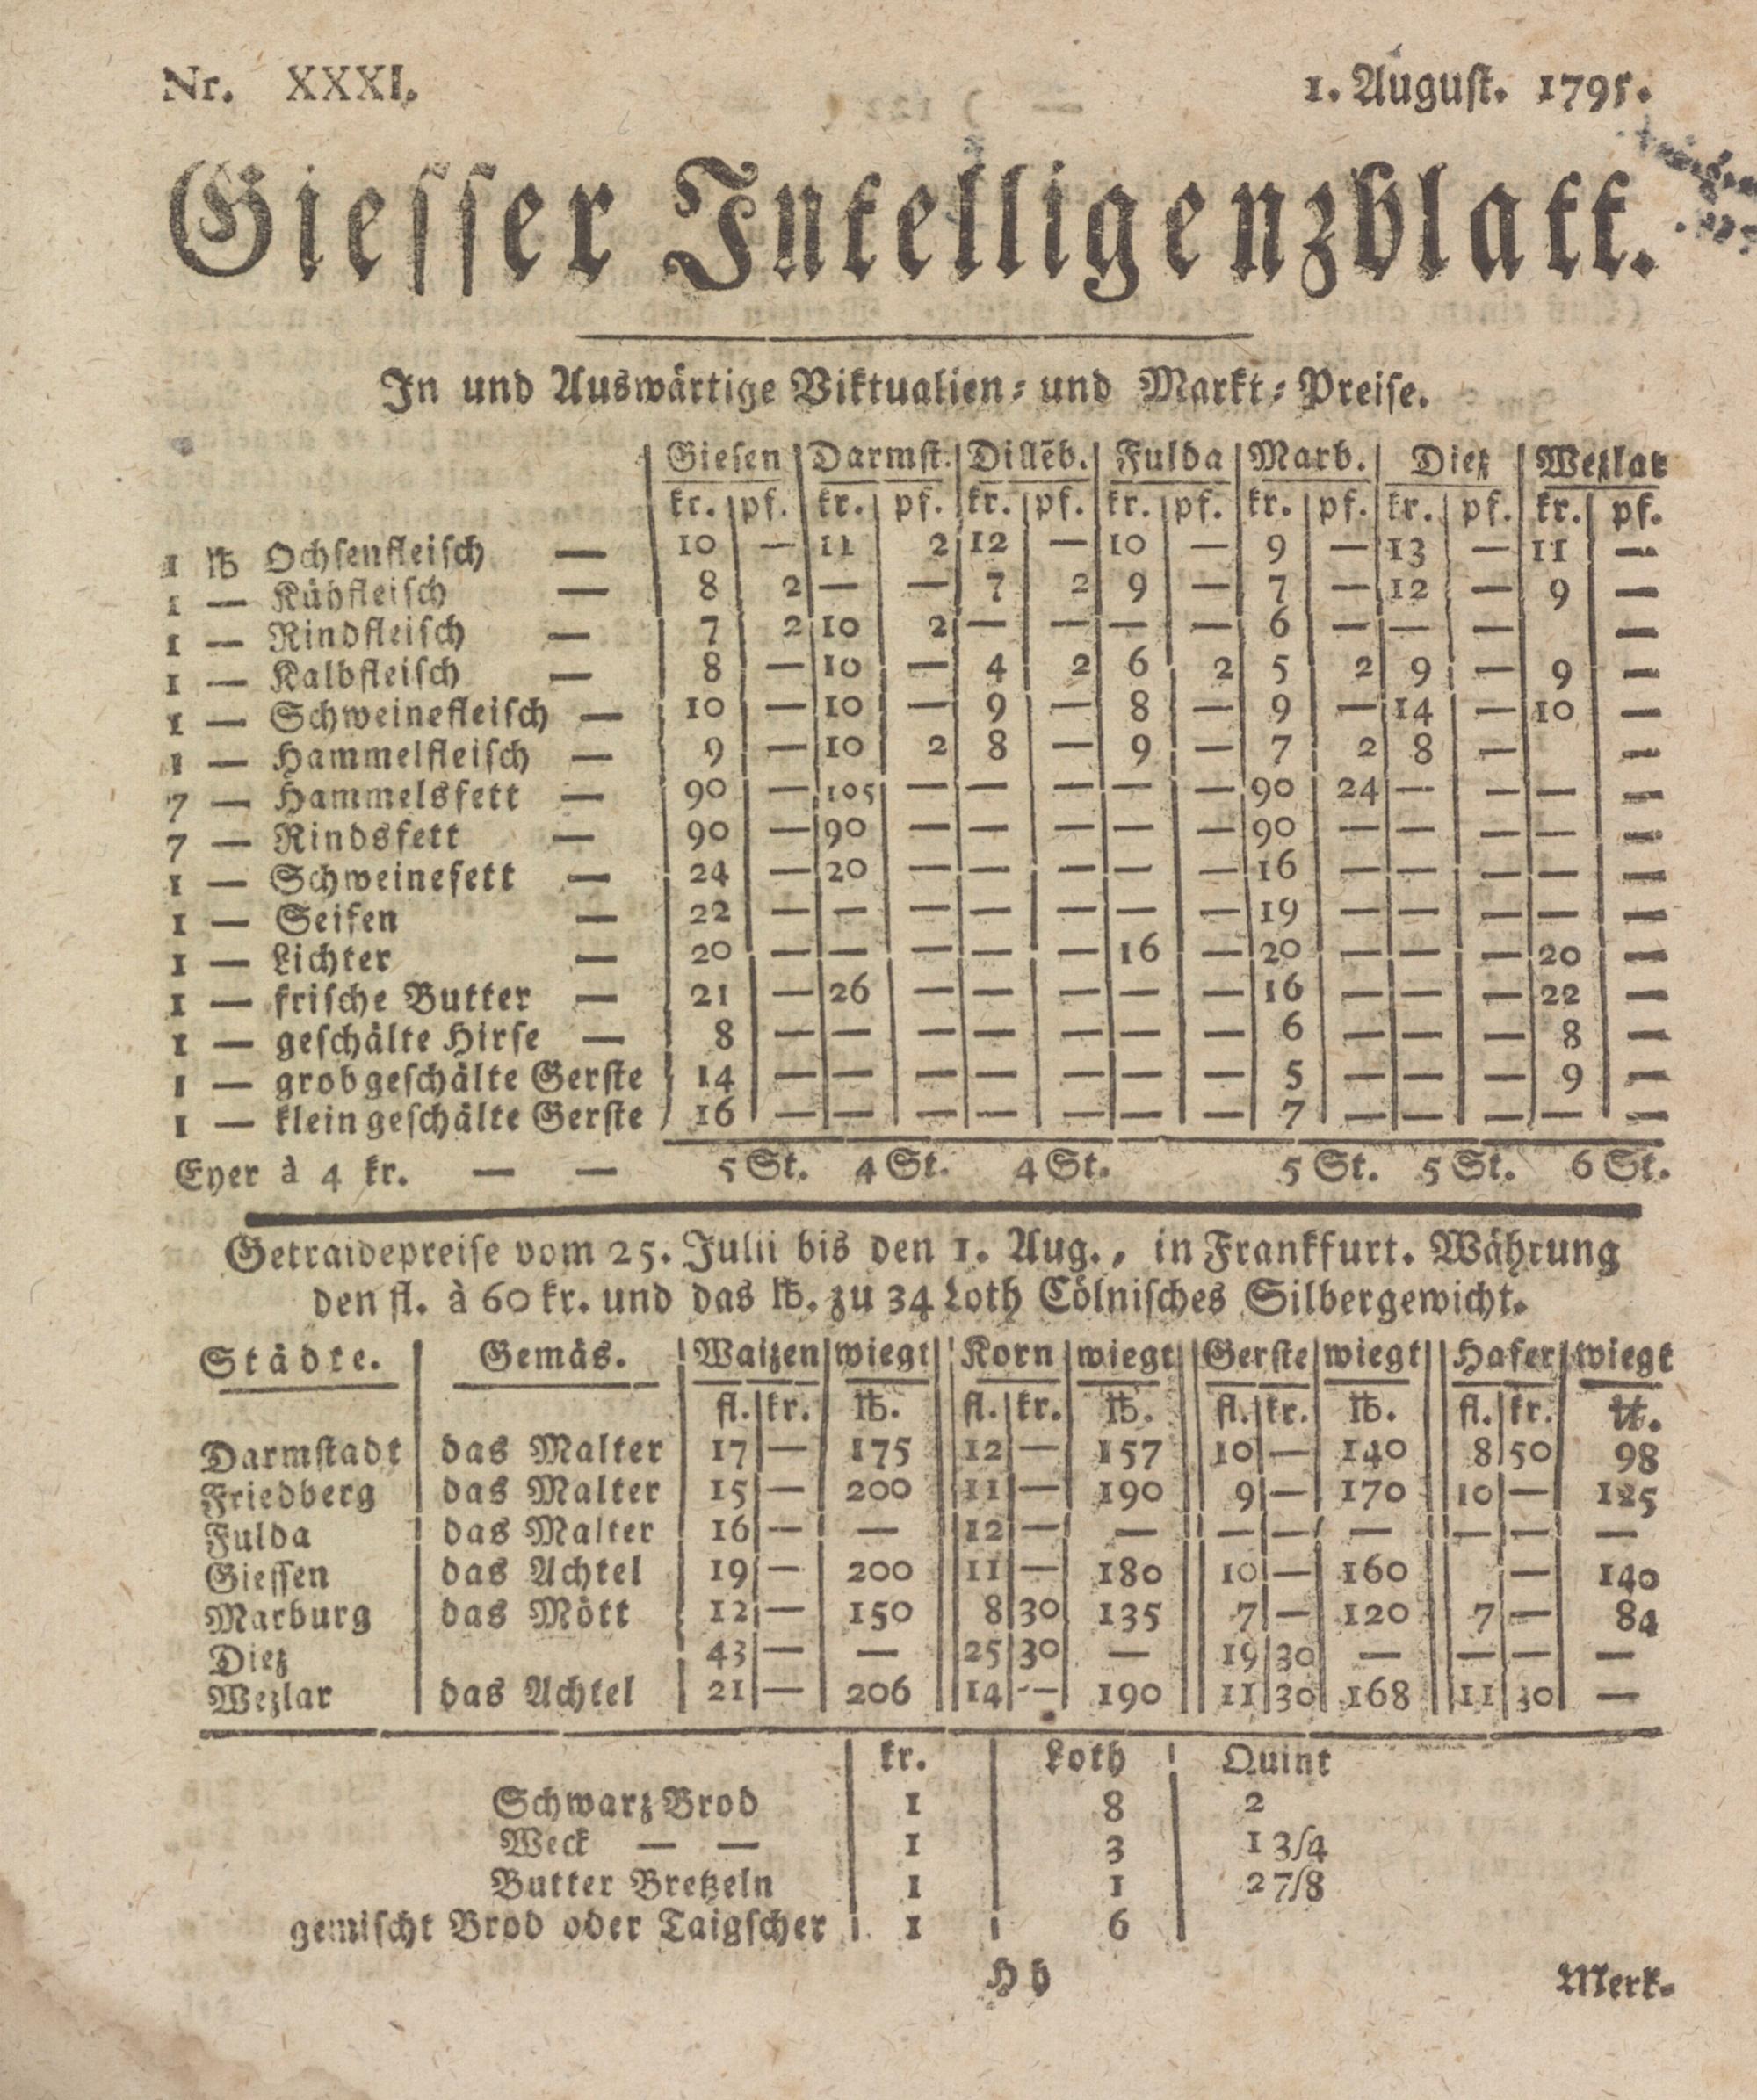 Nr. XXXI. 1. Auguſt. 1795.
Gieſſer Intelligenzblatt.
In und Auswärtige Viktualien- und Markt-Preiſe.
Gieſen Darmſt. Dillēb. Fulda Marb. Dietz Wetzlar
kr. pf. kr. pf. kr. pf. kr. pf. kr. pf. kr. pf. kr. pf.
1 ℔ Ochſenfleiſch — 10 — 11 2 12 — 10 — 9 — 13 — 11 —
1 — Kühfleiſch — 8 2 — — 7 2 9 — 7 — 12 — 9 —
1 — Rindfleiſch — 7 2 10 2 — — — — 6 — — — —
1 — Kalbfleiſch — 8 — 10 — 4 2 6 2 5 2 9 — 9 —
1 — Schweinefleiſch — 10 — 10 — 9 — 8 — 9 — 14 — 10 —
1 — Hammelfleiſch — 9 — 10 2 8 — 9 — 7 2 8 — —
7 — Hammelsfett — 90 — 105 — — — — — 90 24 — — — —
7 — Rindsfett — 90 — 90 — — — — — 90 — — — — —
1 — Schweinefett — 24 — 20 — — — — — 16 — — — — —
1 — Seifen — 22 — — — — — — — 19 — — — — —
1 — Lichter — 20 — — — — — 16 — 20 — — — 20 —
1 — friſche Butter — 21 — 26 — — — — — 16 — — — 22 —
1 — geſchälte Hirſe — 8 — — — — — — — 6 — — — 8 —
1 — grob geſchälte Gerſte 14 — — — — — — — 5 — — — 9 —
1 — klein geſchälte Gerſte 16 — — — — — — — 7 — — — — —
Eyer à 4 kr. — — 5 St. 4 St. 4 St. 5 St. 5 St. 6 St.
Getraidepreiſe vom 25. Julii bis den 1. Aug., in Frankfurt. Währung
den fl. à 60 kr. und das ℔. zu 34 Loth Cölniſches Silbergewicht.
Städte. Gemäs. Waitzen wiegt Korn wiegt Gerſte wiegt Hafer wiegt
fl. kr. ℔. fl. kr. ℔. fl. kr. ℔. fl. kr. ℔.
Darmſtadt das Malter 17 — 175 12 — 157 10 — 140 8 50 98
Friedberg das Malter 15 — 200 11 — 190 9 — 170 10 — 125
Fulda das Malter 16 — — 12 — — — — — — — —
Gieſſen das Achtel 19 — 200 11 — 180 10 — 160 — 140
Marburg das Mött 12 — 150 8 30 135 7 — 120 7 — 84
Dietz 43 — — 25 30 — 19 30 — — — —
Wetzlar das Achtel 21 — 206 14 — 190 11 30 168 11 30 —
kr. Loth Quint
Schwarz Brod 1 8 2
Weck — — 1 3 1 3/4
Butter Bretzeln 1 1 2 7/8
gemiſcht Brod oder Taigſcher 1 6
H h Merk-